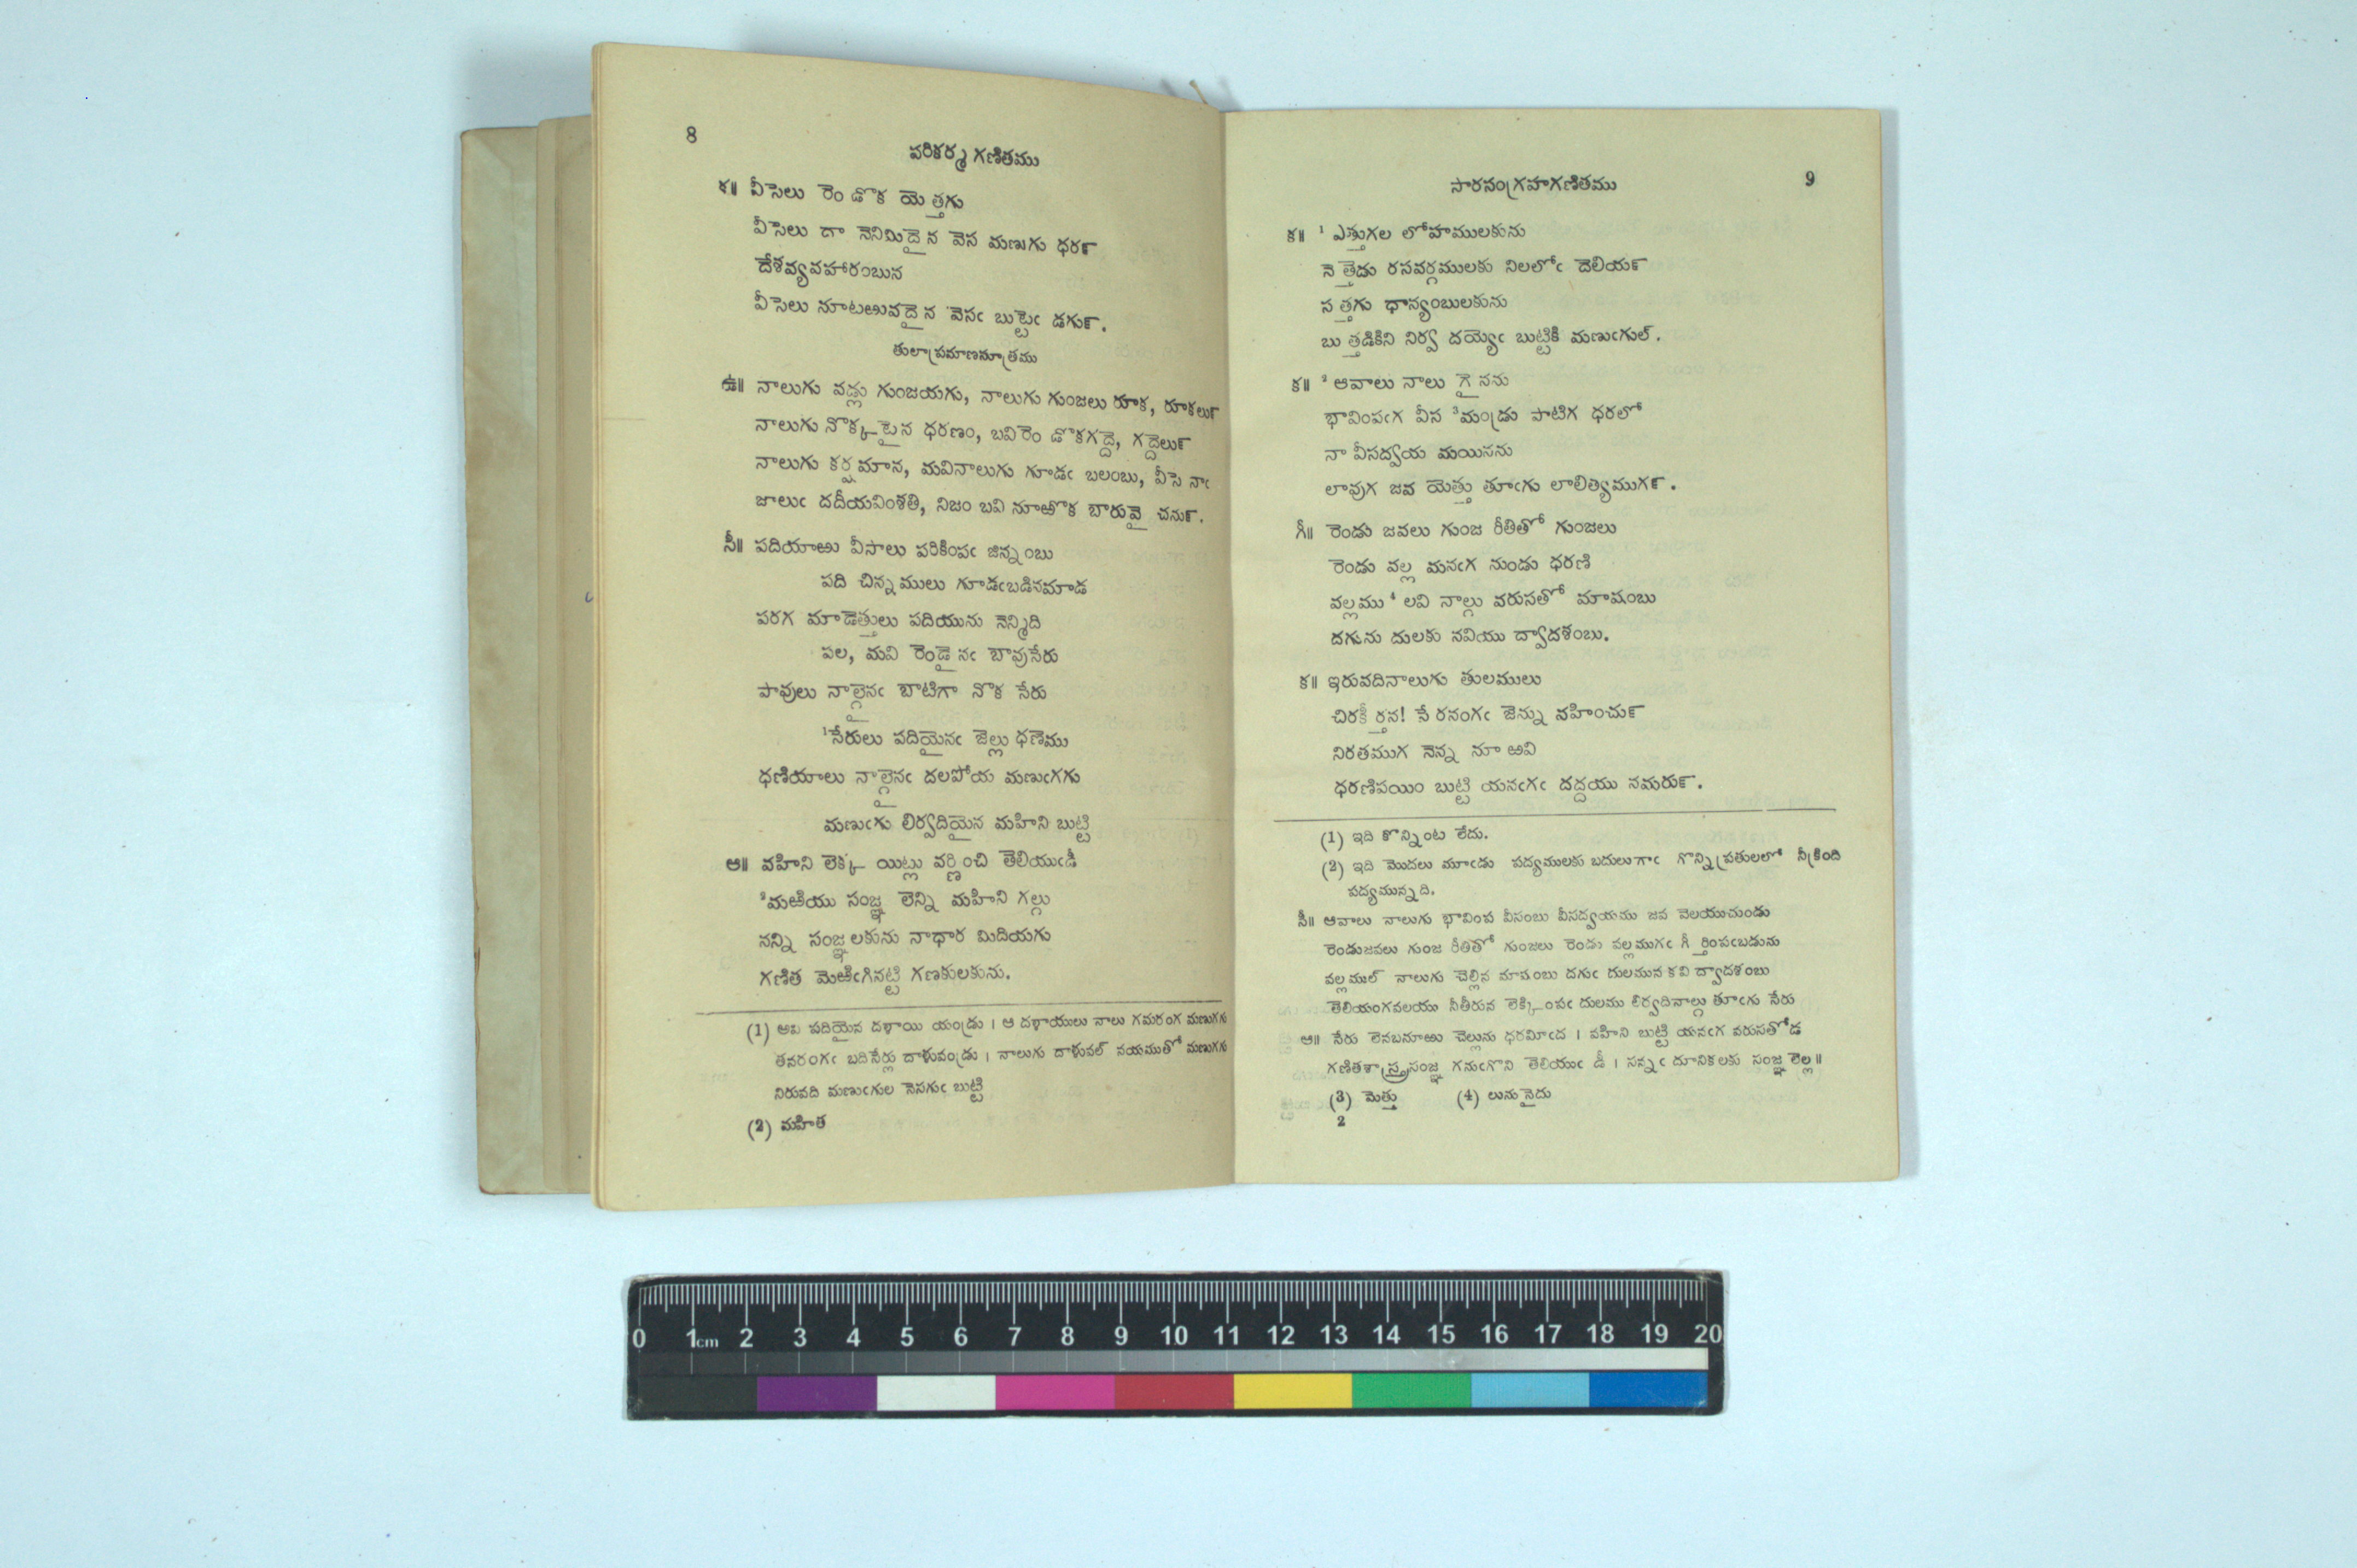 8
పరికర్మ గణితము
క॥ వీసెలు రెం డొక యెత్తగు
వీసెలు దా నెనిమిదైన వెస మణుగు ధర౯
దేశవ్యవహారంబున
వీసెలు నూటఱువదైన వెసఁ బుట్టెఁ డగు౯.
తులాప్రమాణసూత్రము
ఉ॥ నాలుగు వడ్లు గుంజయగు, నాలుగు గుంజలు రూక, రూకలు౯
నాలుగు నొక్కటైన ధరణం, బవిరెం డొకగద్దె, గద్దెలు౯
నాలుగు కర్షమాన, మవినాలుగు గూడఁ బలంబు, వీసె నాఁ
జాలుఁ దదీయవింశతి, నిజం బవి నూఱొక బారువై చను౯.
సీ॥ పదియాఱు వీసాలు పరికింపఁ జిన్నంబు
పది చిన్నములు గూడఁబడినమాడ
పరగ మాడెత్తులు పదియును నెన్మిది
పల, మవి రెండైనఁ బావుసేరు
పావులు నాల్గైనఁ బాటిగా నొక సేరు
¹సేరులు పదియైనఁ జెల్లు ధణెము
ధణియాలు నాల్గైనఁ దలపోయ మణుఁగగు
మణుఁగు లిర్వదియైన మహిని బుట్టి
ఆ॥ వహిని లెక్క యిట్లు వర్ణించి తెలియుఁడీ
²మఱియు సంజ్ఞ లెన్ని మహిని గల్గు
నన్ని సంజ్ఞలకును నాధార మిదియగు
గణిత మెఱిఁగినట్టి గణకులకును.
(1) అవి పదియైన దళాయి యండ్రు । ఆ దళాయులు నాలు గమరంగ మణుగగు
తవరంగఁ బదిసేర్లు దాళువండ్రు । నాలుగు దాళువల్ నయముతో మణుగగు
నిరువది మణుఁగుల నెసగుఁ బుట్టి
(2) మహిత
సారసంగ్రహగణితము
9
క॥ ¹ ఎత్తుగల లోహములకును
నెత్తెదు రసవర్గములకు నిలలోఁ దెలియ౯
సత్తగు ధాన్యంబులకును
బుత్తడికిని నిర్వ దయ్యెఁ బుట్టికి మణుఁగుల్.
క॥ ² ఆవాలు నాలు గైనను
భావింపఁగ వీస ³మండ్రు పాటిగ ధరలో
నా వీసద్వయ మయినను
లావుగ జవ యెత్తు తూఁగు లాలిత్యముగ౯.
గీ॥ రెండు జవలు గుంజ రీతితో గుంజలు
రెండు వల్ల మనఁగ నుండు ధరణి
వల్లము ⁴ లవి నాల్గు వరుసతో మాషంబు
దగును దులకు నవియు ద్వాదశంబు.
క॥ ఇరువదినాలుగు తులములు
చిరకీర్తన! సే రనంగఁ జెన్ను వహించు౯
నిరతముగ నెన్న నూ ఱవి
ధరణిపయిం బుట్టి యనఁగఁ దద్దయు నమరు౯.
(1) ఇది కొన్నింట లేదు.
(2) ఇది మొదలు మూఁడు పద్యములకు బదులుగాఁ గొన్ని ప్రతులలో నీక్రింది
పద్యమున్నది.
సీ॥ ఆవాలు నాలుగు భావింప వీసంబు వీసద్వయము జవ వెలయుచుండు
రెండుజవలు గుంజ రీతితో గుంజలు రెండు వల్లముగఁ గీర్తింపఁబడును
వల్లముల్ నాలుగు చెల్లిన మాషంబు దగుఁ దులమున కవి ద్వాదశంబు
తెలియంగవలయు నీతీరున లెక్కింపఁ దులము లిర్వదినాల్గు తూఁగు సేరు
ఆ॥ సేరు లెనబనూఱు చెల్లును ధరమీఁద । వహిని బుట్టి యనఁగ వరుసతోడ
గణితశాస్త్రసంజ్ఞ గనుఁగొని తెలియుఁ డీ । సన్నఁ దూనికలకు సంజ్ఞ లెల్ల॥
(3) మెత్తు (4) లునునైదు
2
0 1cm 2 3 4 5 6 7 8 9 10 11 12 13 14 15 16 17 18 19 20